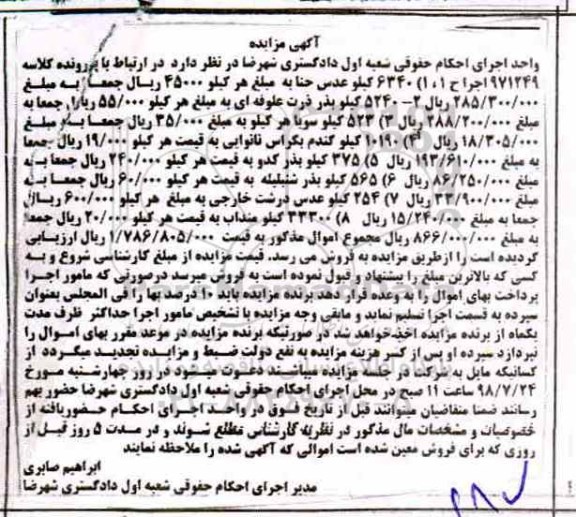 آگهی مزایده
واحد اجرای احکام حقوقی شعبه اول دادگستری شهرضا در نظر دارد در ارتباط با پرونده کلاسه
۹۷۱۲۴۹ اجرا ح ۱، ۱) ۶۳۴۰ کیلو عدس حنا به مبلغ هر کیلو ۴۵۰۰۰ ریال جمعا به مبلغ
۲۸۵/۳۰۰/۰۰۰ ریال ۲- ۵۲۴۰ کیلو بذر ذرت علوفه ای به مبلغ هر کیلو ۵۵/۰۰۰ ریال جمعا به
مبلغ ۲۸۸/۲۰۰/۰۰۰ ریال ۳) ۵۲۳ کیلو سویا هر کیلو به مبلغ ۳۵/۰۰۰ ریال جمعا به مبلغ
۱۸/۳۰۵/۰۰۰ ریال ۴) ۱۰۱۹۰ کیلو گندم بکراس نانوایی به قیمت هر کیلو ۱۹/۰۰۰ ریال جمعا
به مبلغ ۱۹۳/۶۱۰/۰۰۰ ریال ۵) ۳۷۵ کیلو بذر کدو به قیمت هر کیلو ۲۴۰/۰۰۰ ریال جمعا به
مبلغ ۸۶/۲۵۰/۰۰۰ ریال ۶) ۵۶۵ کیلو بذر شنبلیله به قیمت هر کیلو ۶۰/۰۰۰ ریال جمعا به
مبلغ ۳۳/۹۰۰/۰۰۰ ریال ۷) ۲۵۴ کیلو عدس درشت خارجی به مبلغ هر کیلو ۶۰۰/۰۰۰ ریال
جمعا به مبلغ ۱۵/۲۴۰/۰۰۰ ریال ۸) ۳۳۳۰۰ کیلو منداب به قیمت هر کیلو ۲۰/۰۰۰ ریال جمعا
به مبلغ ۸۶۶/۰۰۰/۰۰۰ ریال مجموع اموال مذکور به قیمت ۱/۷۸۶/۸۰۵/۰۰۰ ریال ارزیابی
گردیده است را ازطریق مزایده به فروش می رسد. قیمت مزایده از مبلغ کارشناسی شروع و به
کسی که بالاترین مبلغ را پیشنهاد و قبول نموده است به فروش میرسد درصورتی که مامور اجرا
پرداخت بهای اموال را به وعده قرار دهد برنده مزایده باید ۱۰ درصد بها را فی المجلس بعنوان
سپرده به قسمت اجرا تسلیم نماید و مابقی وجه مزایده با تشخیص مامور اجرا حداکثر ظرف مدت
یکماه از برنده مزایده اخذ خواهد شد در صورتیکه برنده مزایده در موعد مقرر بهای اموال را
نپردازد سپرده او پس از کسر هزینه مزایده به نفع دولت ضبط و مزایده تجدید میگردد از
کسانیکه مایل به شرکت در جلسه مزایده میباشند دعوت میشود در روز چهارشنبه مورخ
۹۸/۷/۲۴ ساعت ۱۱ صبح در محل اجرای احکام حقوقی شعبه اول دادگستری شهرضا حضور بهم
رسانند ضمنا متقاضیان میتوانند قبل از تاریخ فوق در واحد اجرای احکام حضوریافته از
خصوصیات و مشخصات مال مذکور در نظریه کارشناسی مطلع شوند و در مدت ۵ روز قبل از
روزی که برای فروش معین شده است اموالی که آگهی شده را ملاحظه نمایند
ابراهیم صابری
مدیر اجرای احکام حقوقی شعبه اول دادگستری شهرضا